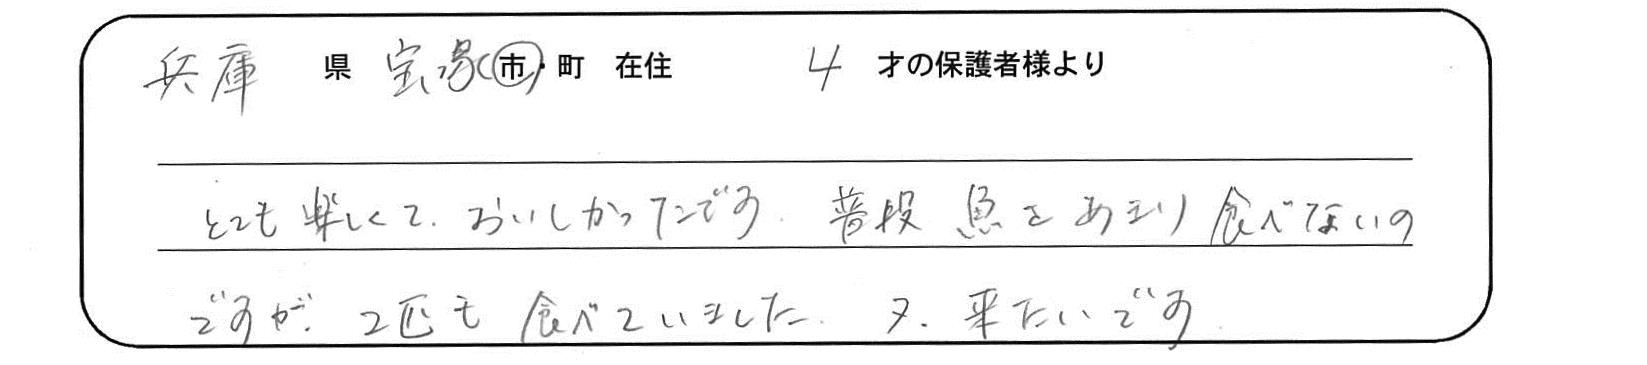 兵庫 県 宝塚 市・町 在住 4 才の保護者様より
とても楽しくて、おいしかったです。普段 魚をあまり食べないの
ですが、2匹も食べていました。又、来たいです